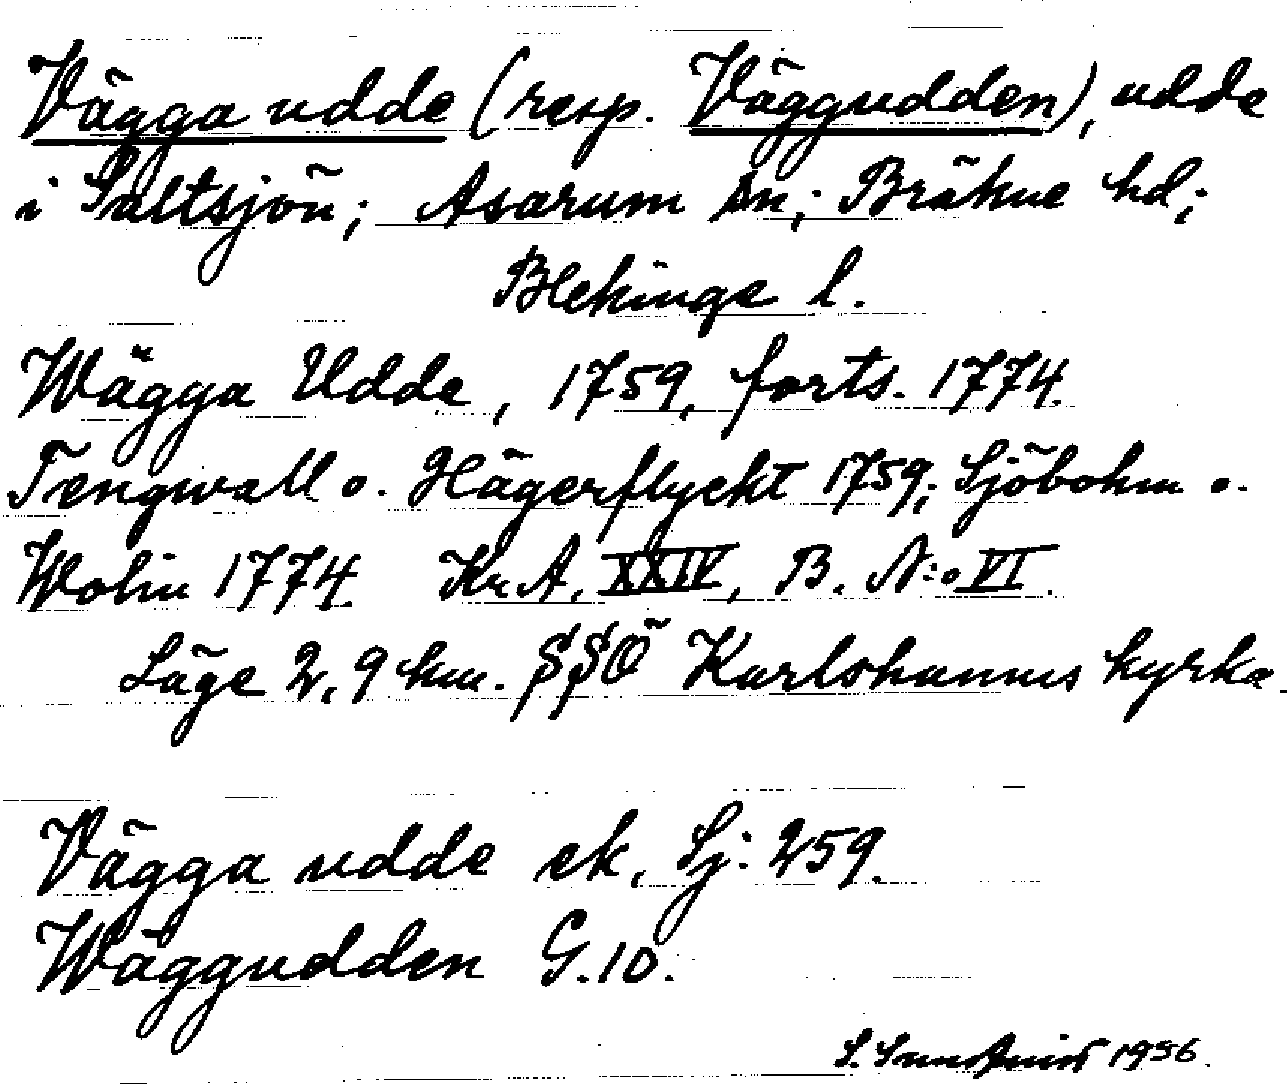 Vägga udde (resp. Väggudden), udde
i Saltsjön; Asarum sn; Bräkne hd;
Blekinge l.
Wägga Udde, 1759, forts. 1774.
Tengwall o. Hägerflyckt 1759; Sjöbohm o.
Wolin 1774. Kr.A. XXIV, B. N:o VI.
Läge 2,9 km. SSÖ Karlshamns kyrka.
Vägga udde ek. Sj: 259.
Wäggudden G.10.
S. 1956.